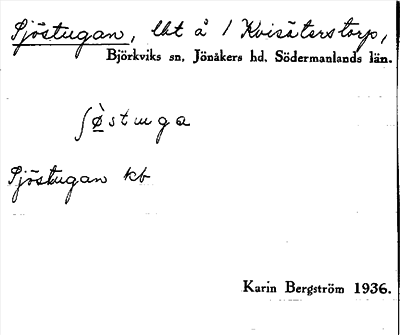 Sjöstugan, lht å 1 Kvisäterstorp,
Björkviks sn, Jönåkers hd, Södermanlands län.
ʃø̀stuga
Sjöstugan kb
Karin Bergström 1936.